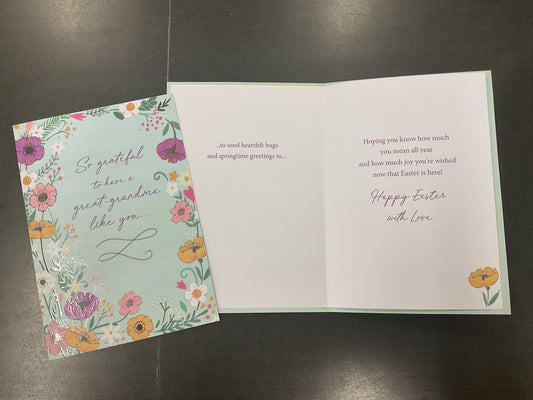 So grateful
to have a
great-grandma
like you...
...to send heartfelt hugs
and springtime greetings to...
Hoping you know how much
you mean all year
and how much joy you're wished
now that Easter is here!
Happy Easter
with Love